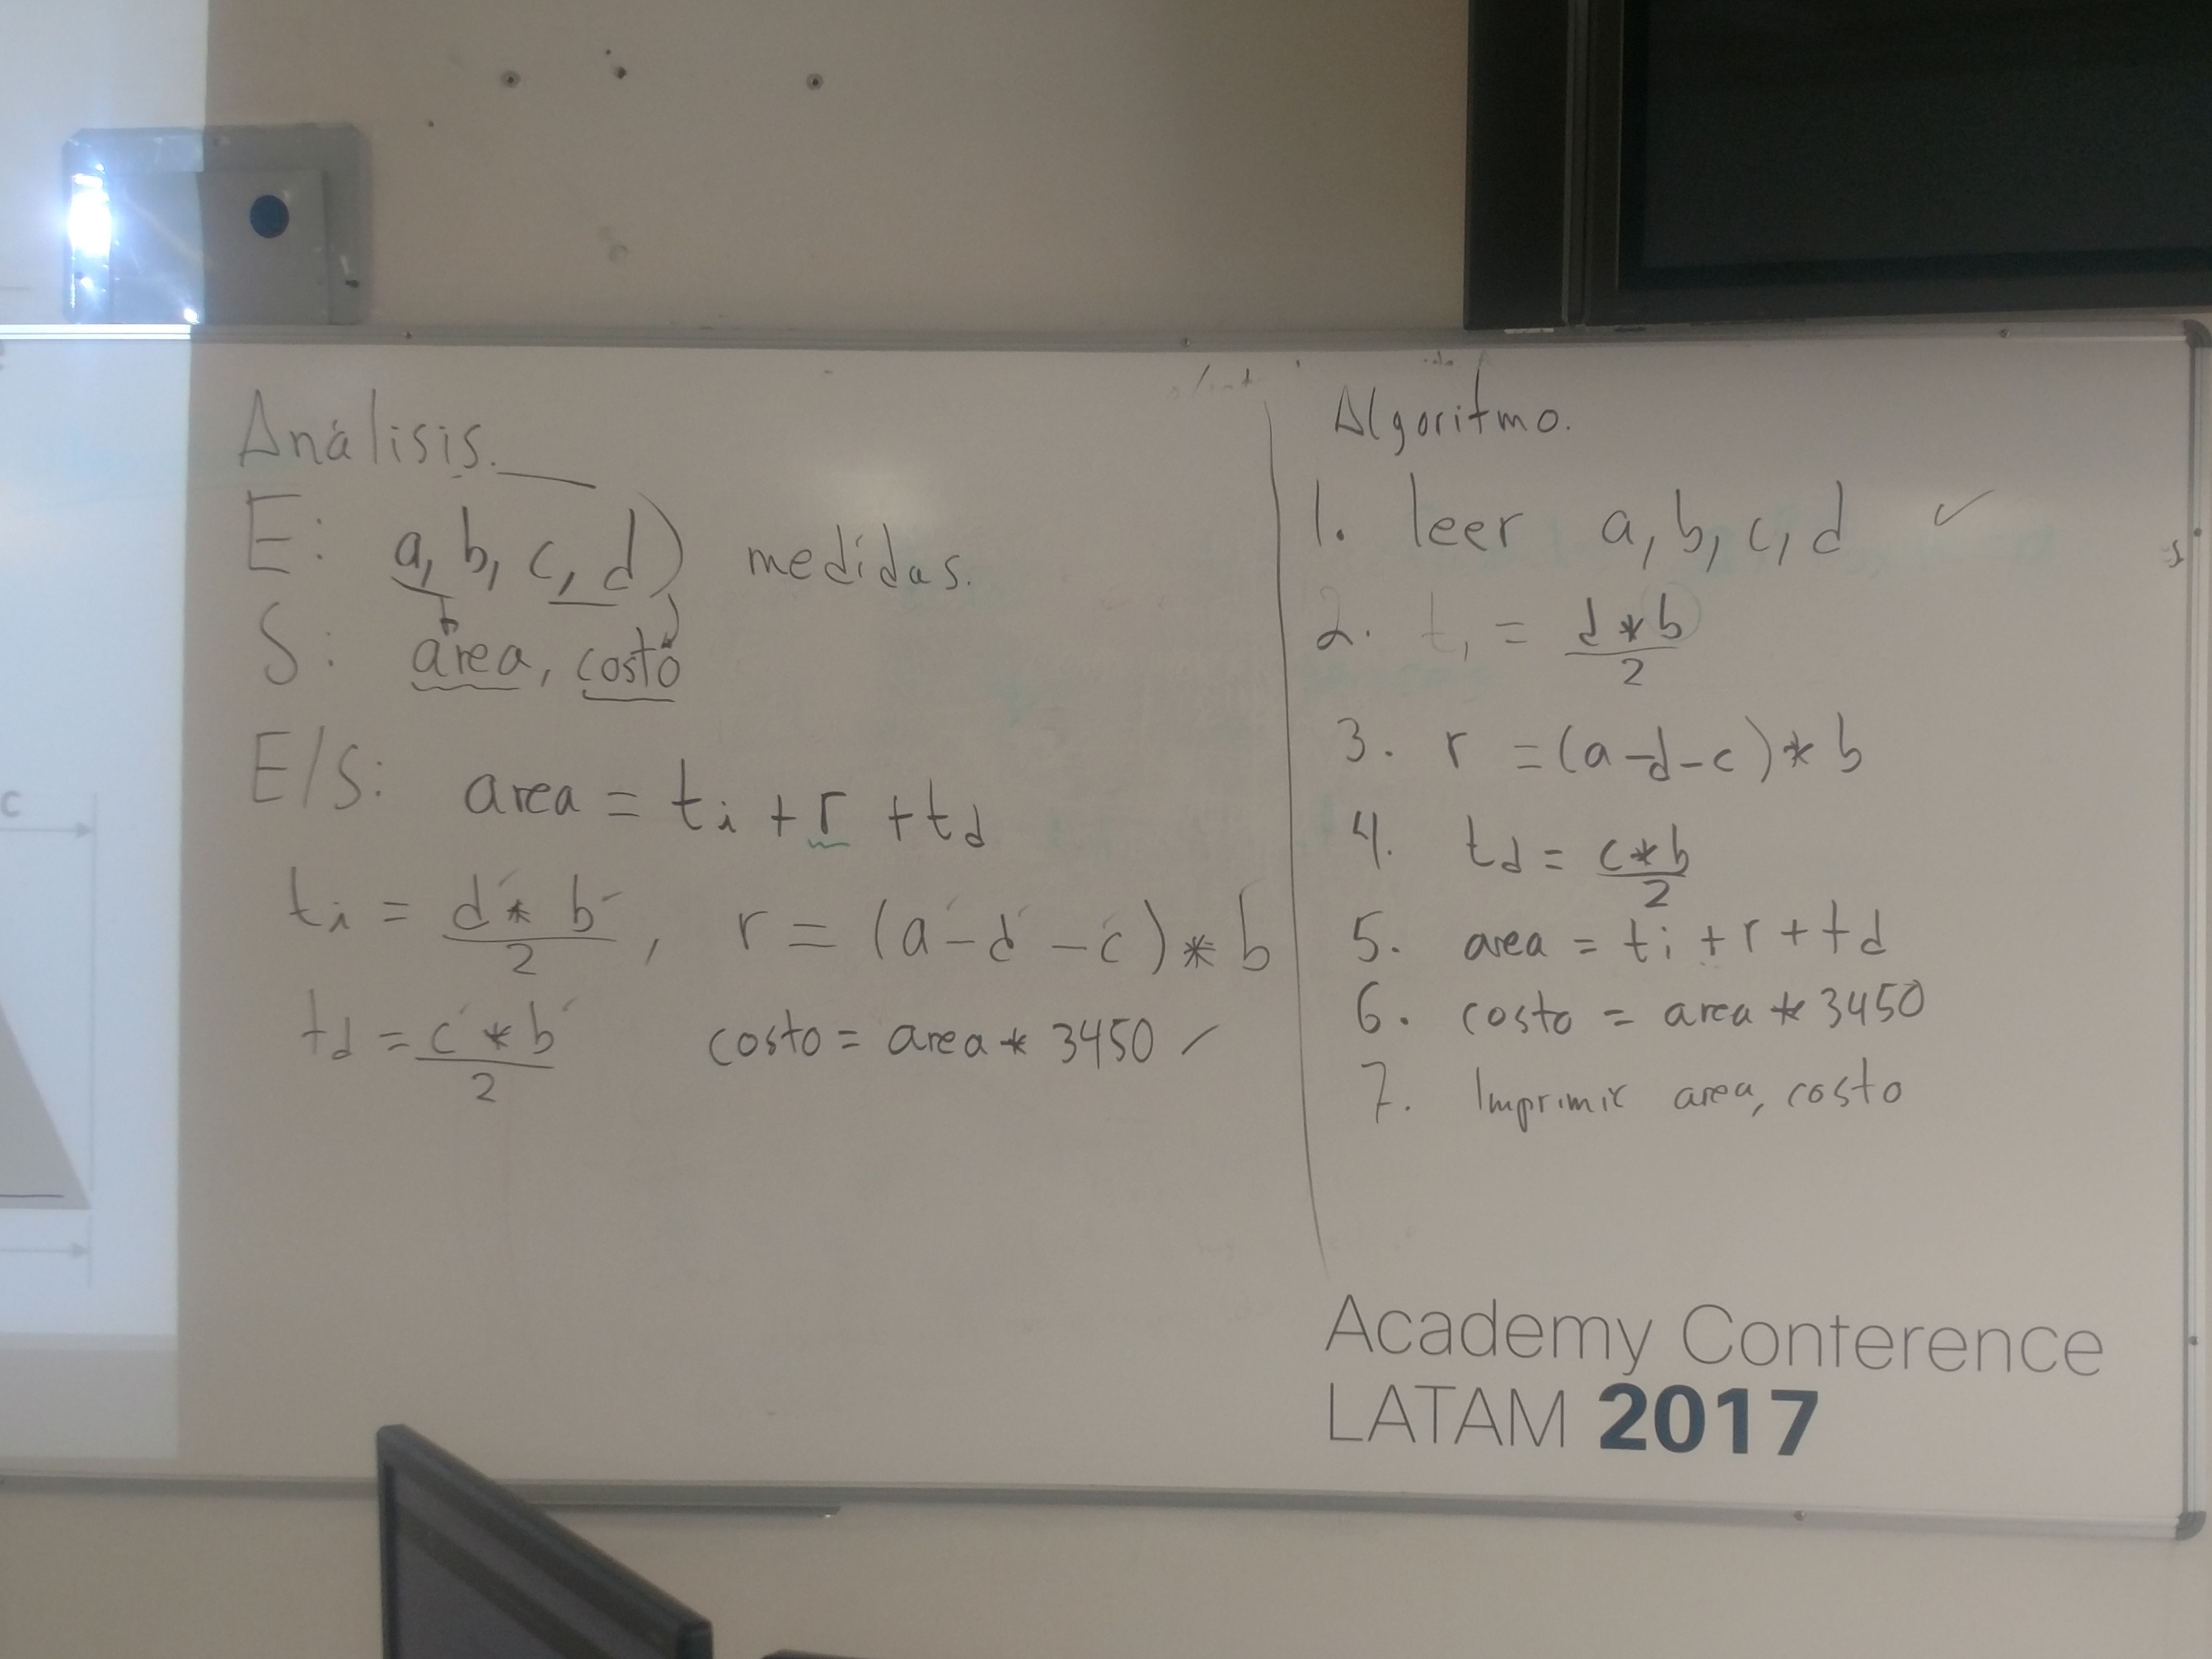 Análisis.
E: a, b, c, d) medidas.
S: area, costo
E/S: area = ti + r + td
ti = d * b / 2 , r = (a - d - c) * b
td = c * b / 2 costo = area * 3450
c
Algoritmo.
1. leer a, b, c, d ✓
2. t1 = d * b / 2
3. r = (a-d-c) * b
4. td = c * b / 2
5. area = ti + r + td
6. costo = area * 3450
7. Imprimir area, costo
Academy Conference
LATAM 2017